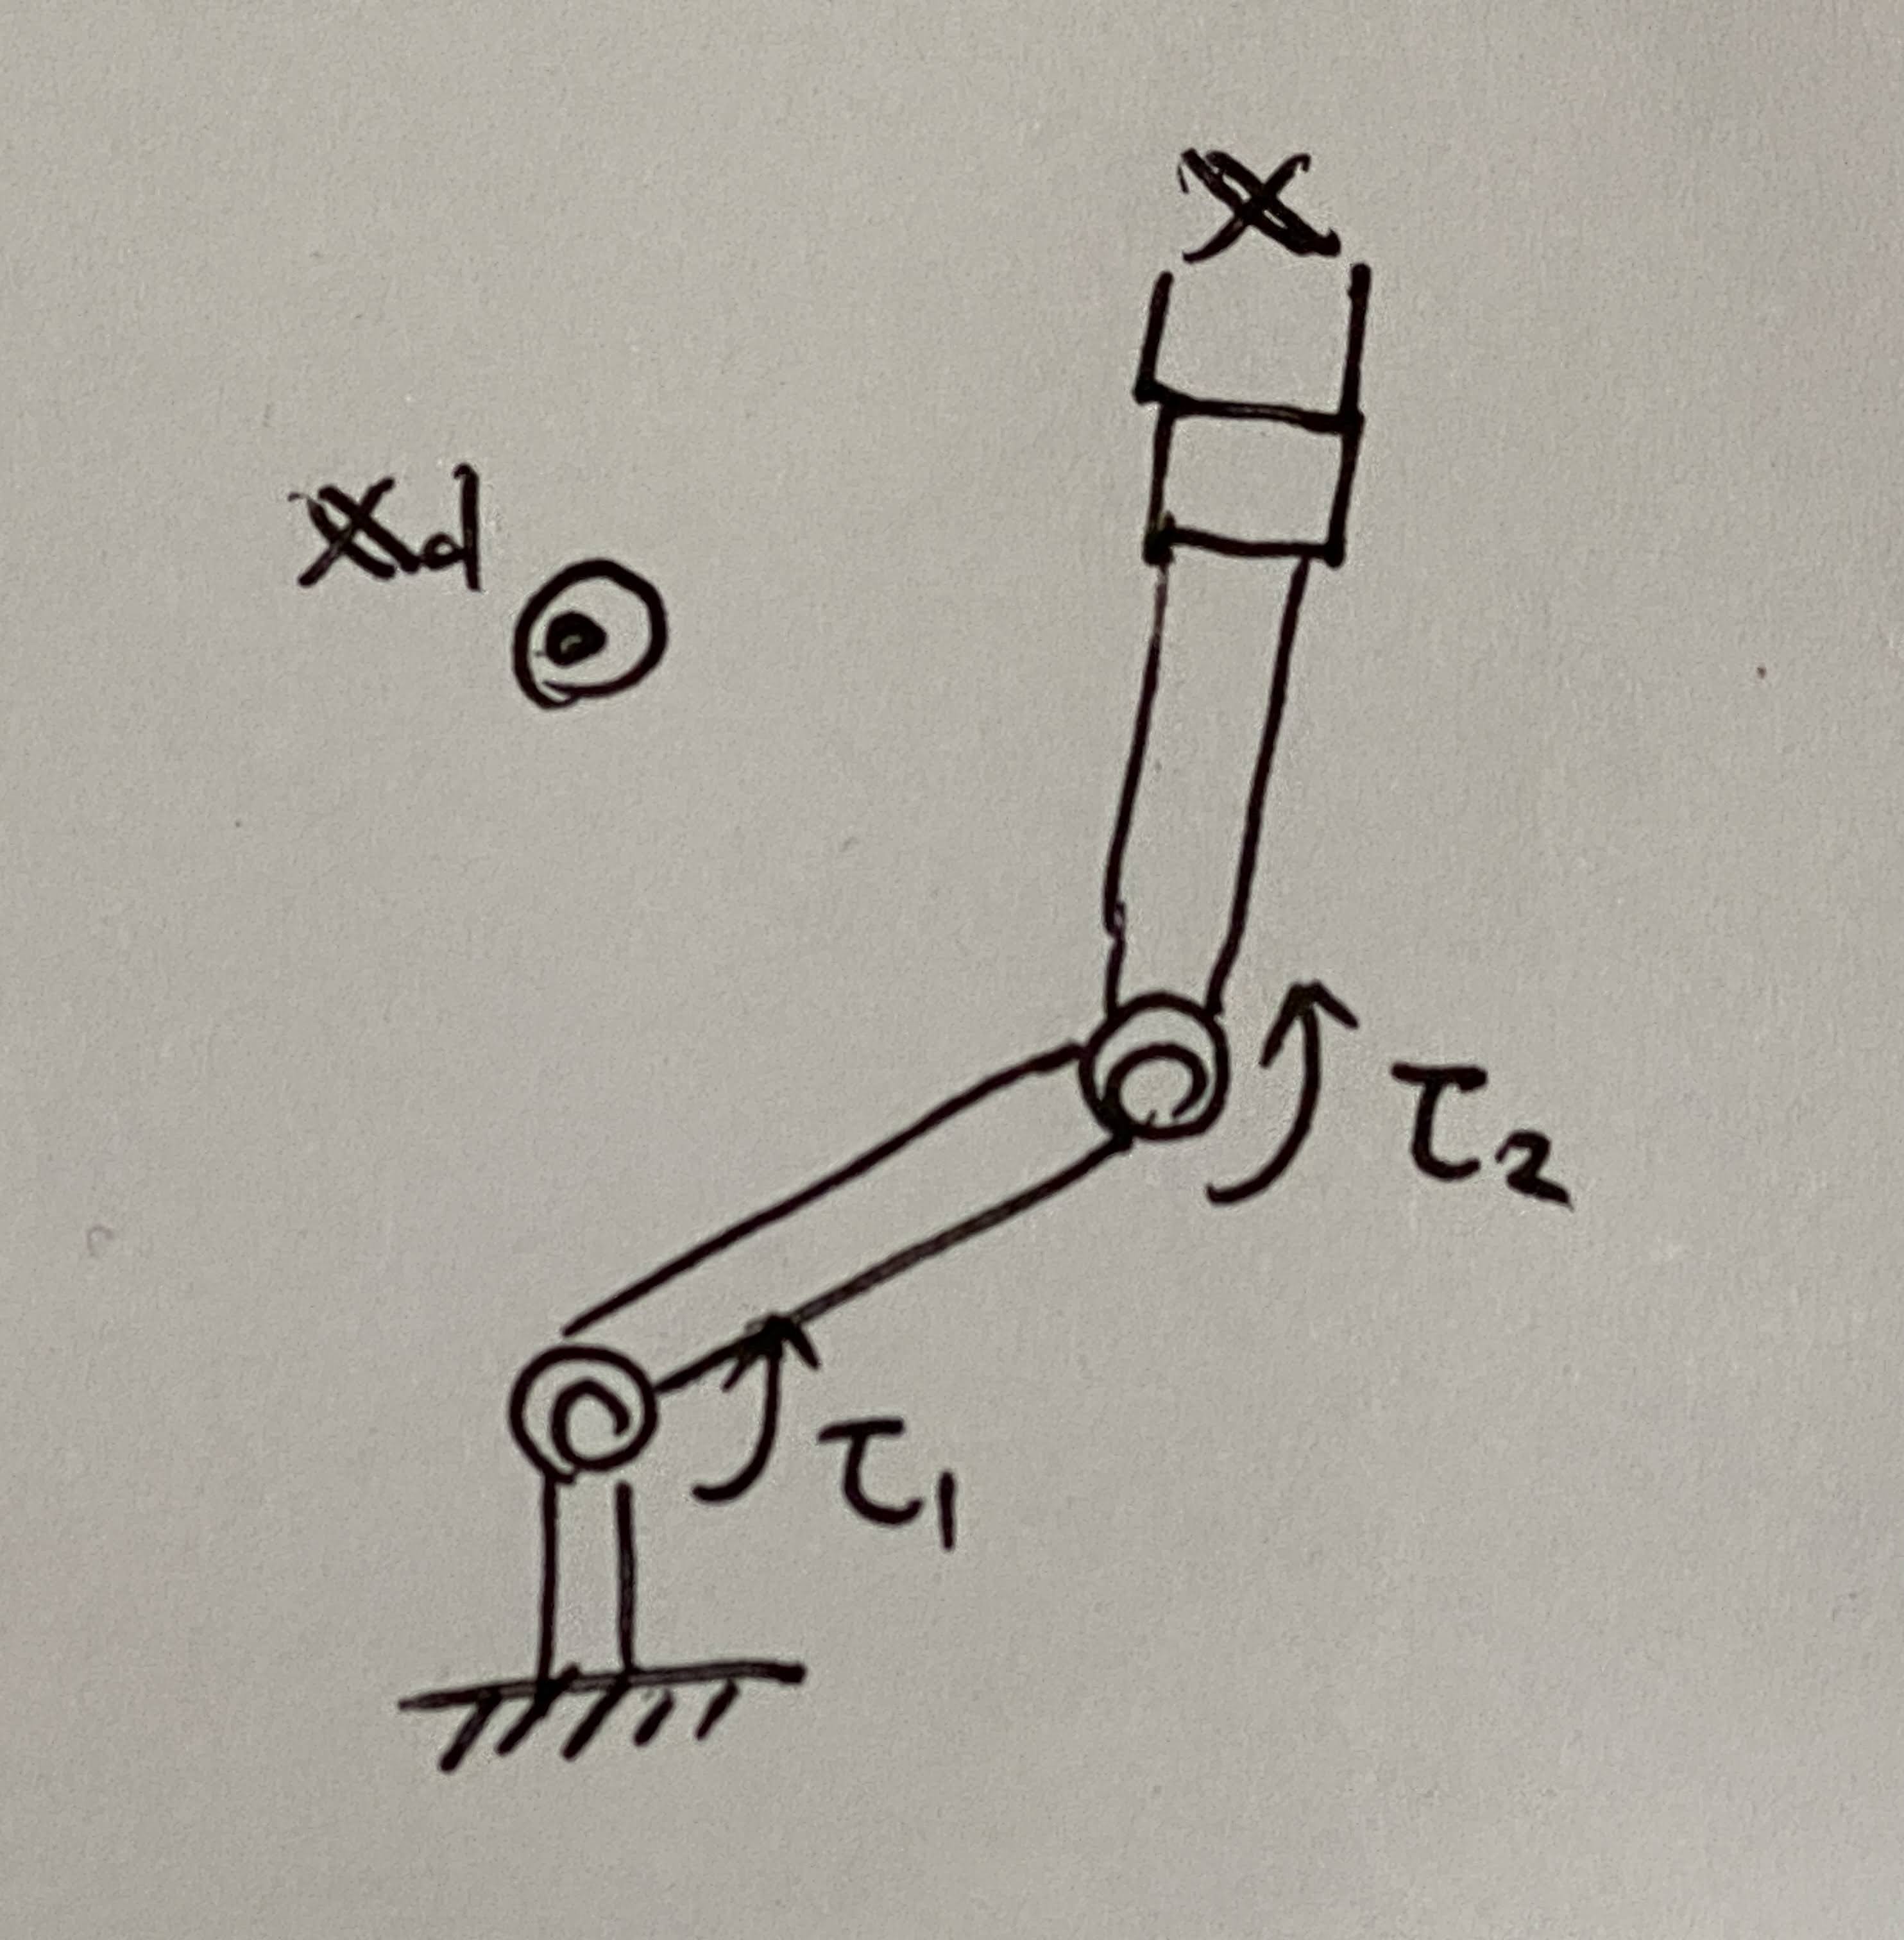 X
Xd
τ2
τ1